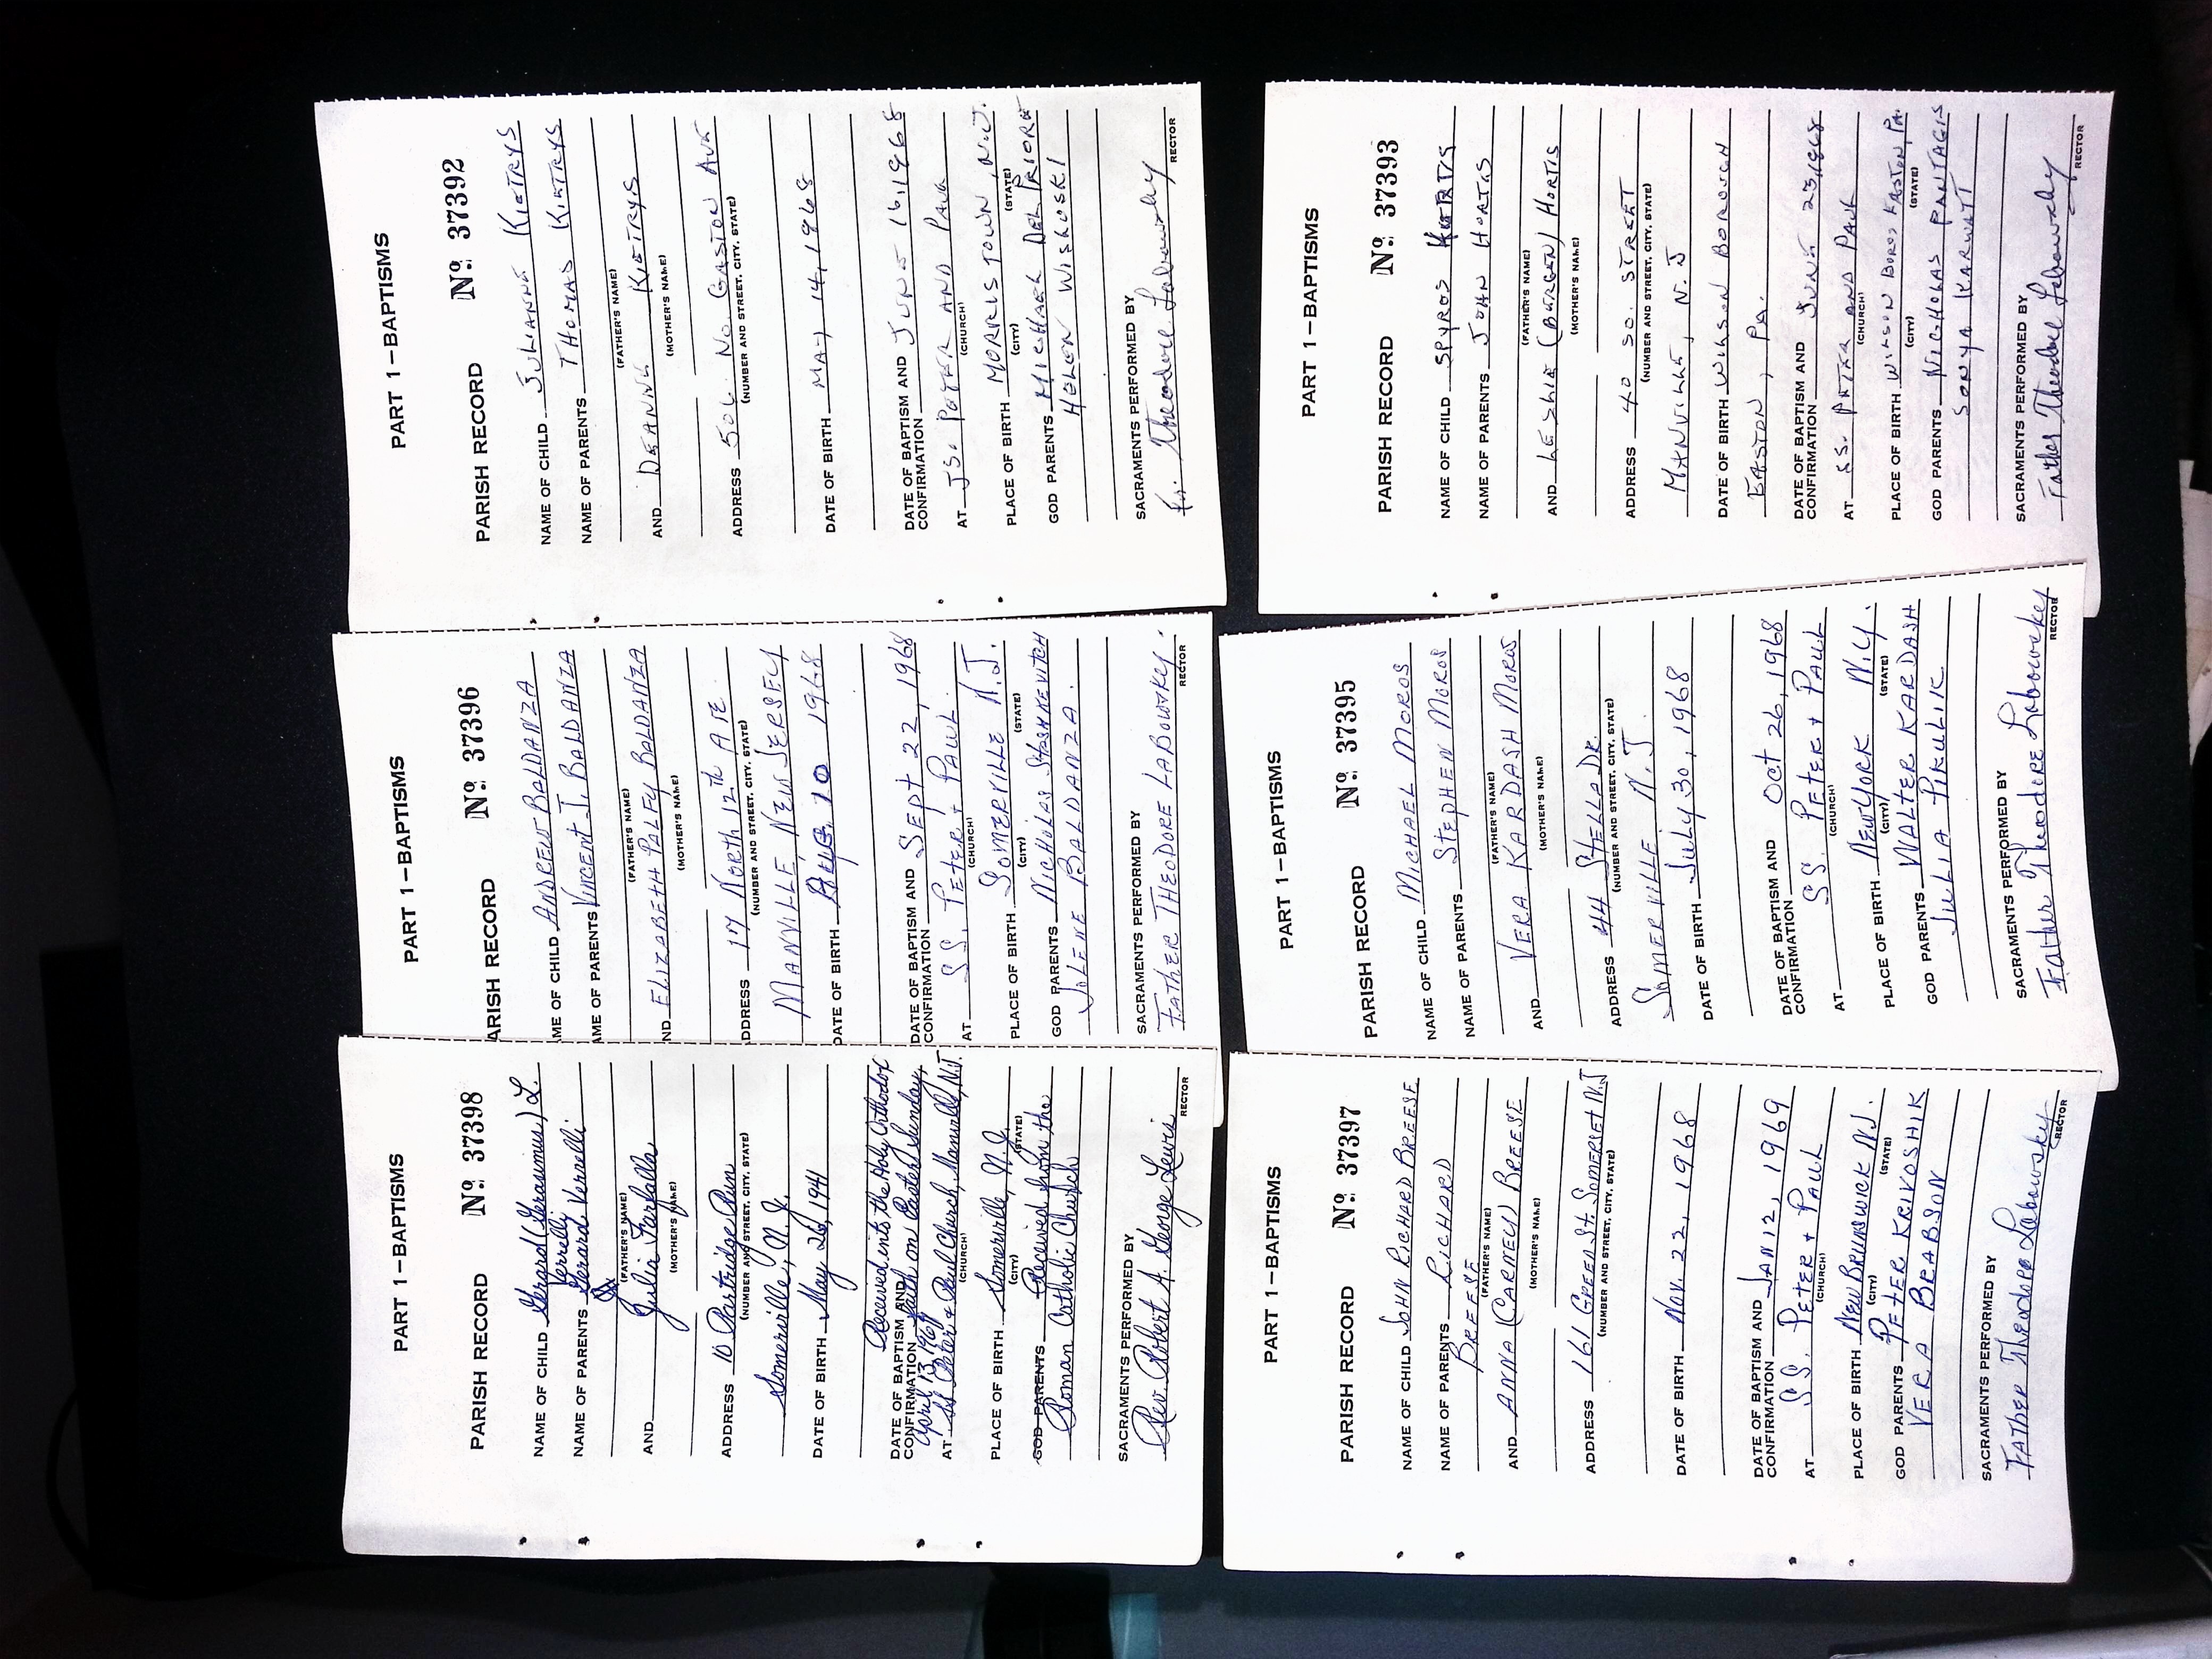 PART 1—BAPTISMS
PARISH RECORD Nº 37398
NAME OF CHILD Gerard (Gerasimus) L.
Verrelli
NAME OF PARENTS Gerard Verrelli
(FATHER'S NAME)
AND Julia Farfalla
(MOTHER'S NAME)
ADDRESS 10 Partridge Run
(NUMBER AND STREET, CITY, STATE)
Somerville, N. J.
DATE OF BIRTH May 26, 1941
Received into the Holy Orthodox
DATE OF BAPTISM AND
CONFIRMATION faith on Easter Sunday,
April 13, 1969
AT SS Peter & Paul Church, Manville, N.J.
(CHURCH)
PLACE OF BIRTH Somerville, N. J.
(CITY) (STATE)
GOD PARENTS Received from the
Roman Catholic Church
SACRAMENTS PERFORMED BY
Rev. Robert A. George Lewis
RECTOR
PART 1—BAPTISMS
ARISH RECORD Nº 37396
ME OF CHILD ANDREW BALDANZA
AME OF PARENTS VINCENT J. BALDANZA
(FATHER'S NAME)
ND ELIZABETH PALFY BALDANZA
(MOTHER'S NAME)
DDRESS 17 NORTH 12th AVE
(NUMBER AND STREET, CITY, STATE)
MANVILLE, NEW JERSEY
DATE OF BIRTH AUG. 10 1968
DATE OF BAPTISM AND
CONFIRMATION SEPT 22, 1968
AT SS. PETER + PAUL
(CHURCH)
PLACE OF BIRTH SOMERVILLE N.J.
(CITY) (STATE)
GOD PARENTS NICHOLAS STASHKEVITCH
JOLENE BALDANZA.
SACRAMENTS PERFORMED BY
FATHER THEODORE LABOWSKY.
RECTOR
PART 1—BAPTISMS
PARISH RECORD Nº 37392
NAME OF CHILD JULIANNE KIETRYS
NAME OF PARENTS THOMAS KIETRYS
(FATHER'S NAME)
AND DEANNE KIETRYS
(MOTHER'S NAME)
ADDRESS 506 NO. GASTON AVE
(NUMBER AND STREET, CITY, STATE)
DATE OF BIRTH MAY 14, 1968
DATE OF BAPTISM AND
CONFIRMATION JUNE 16, 1968
AT SS. PETER AND PAUL
(CHURCH)
PLACE OF BIRTH MORRISTOWN, N.J.
(CITY) (STATE)
GOD PARENTS MICHAEL DEL PRIORE
HELEN WISKOSKI
SACRAMENTS PERFORMED BY
Fr. Theodore Labowsky
RECTOR
PART 1—BAPTISMS
PARISH RECORD Nº 37397
NAME OF CHILD JOHN RICHARD BREESE
NAME OF PARENTS RICHARD
BREESE
(FATHER'S NAME)
AND ANNA (CARNEY) BREESE
(MOTHER'S NAME)
ADDRESS 161 GREEN St. SOMERSET N.J
(NUMBER AND STREET, CITY, STATE)
DATE OF BIRTH NOV. 22, 1968
DATE OF BAPTISM AND
CONFIRMATION JAN 12, 1969
AT SS. PETER + PAUL
(CHURCH)
PLACE OF BIRTH NEW BRUNSWICK NJ.
(CITY) (STATE)
GOD PARENTS PETER KRIVOSHIK
VERA BRABSON
SACRAMENTS PERFORMED BY
FATHER THEODORE Labowsky
RECTOR
PART 1—BAPTISMS
PARISH RECORD Nº 37395
NAME OF CHILD MICHAEL MOROS
NAME OF PARENTS STEPHEN MOROS
(FATHER'S NAME)
AND VERA KARDASH MOROS
(MOTHER'S NAME)
ADDRESS 44 STELLA DR.
(NUMBER AND STREET, CITY, STATE)
SOMERVILLE N.J.
DATE OF BIRTH JULY 30, 1968
DATE OF BAPTISM AND
CONFIRMATION OCT 26, 1968
AT SS. PETER + PAUL
(CHURCH)
PLACE OF BIRTH NEW YORK N.Y.
(CITY) (STATE)
GOD PARENTS WALTER KARDASH
JULIA PIKULIK
SACRAMENTS PERFORMED BY
Father Theodore Labowsky
RECTOR
PART 1—BAPTISMS
PARISH RECORD Nº 37393
NAME OF CHILD SPYROS HORTIS
NAME OF PARENTS JOHN HORTIS
(FATHER'S NAME)
AND LESLIE (BERGEN) HORTIS
(MOTHER'S NAME)
ADDRESS 40 SO. STREET
(NUMBER AND STREET, CITY, STATE)
MANVILLE, N.J
DATE OF BIRTH WILSON BOROUGH
EASTON, PA.
DATE OF BAPTISM AND
CONFIRMATION JUNE 23, 1968
AT SS. PETER AND PAUL
(CHURCH)
PLACE OF BIRTH WILSON BORO, EASTON, PA.
(CITY) (STATE)
GOD PARENTS NICHOLAS PANTAGIS
SONYA KARWATT
SACRAMENTS PERFORMED BY
Father Theodore Labowsky
RECTOR